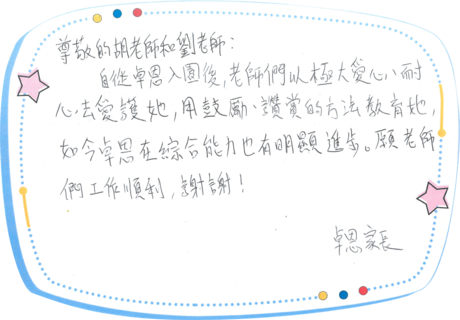 尊敬的胡老師和劉老師：
自從卓恩入園後，老師們以極大愛心、耐
心去愛護她，用鼓勵、讚賞的方法教育她，
如今卓恩在綜合能力也有明顯進步。願老師
們工作順利，謝謝！
卓恩家長